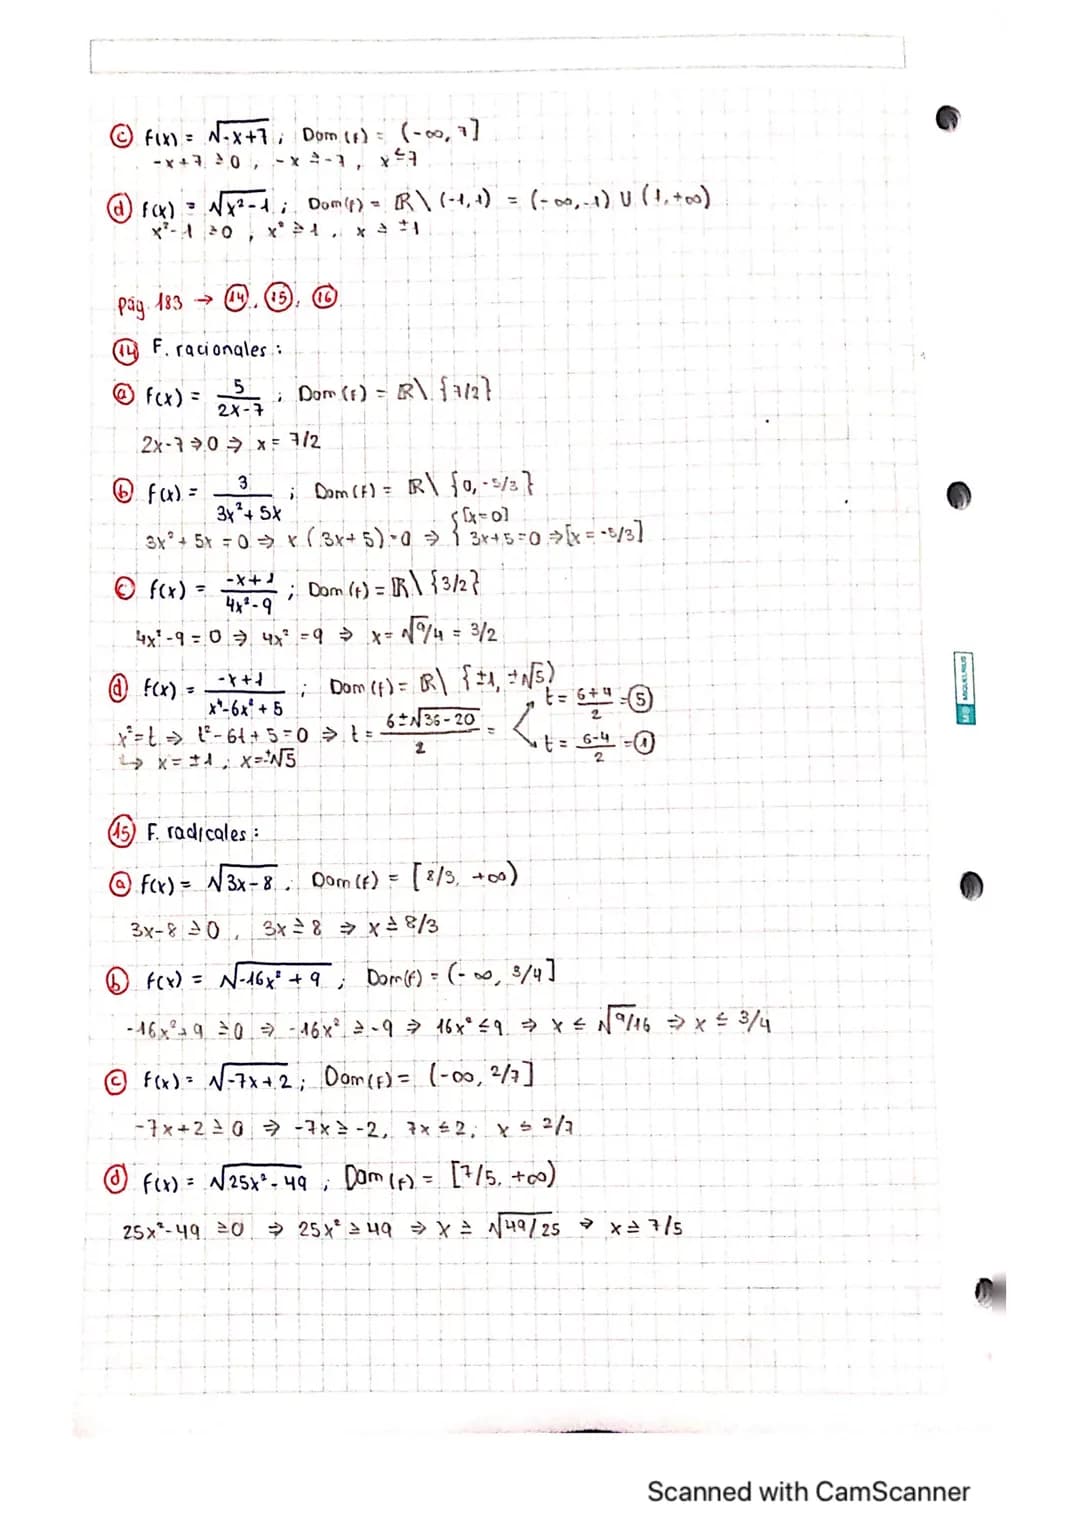 ⓒ f(x) = √-x+7 ; Dom (f) = (-∞, 7]
-x+7 ≥ 0 , -x ≥ -7 , x ≤ 7
ⓓ f(x) = √x²-1 ; Dom(f) = ℝ\ (-1,1) = (-∞,-1) ∪ (1,+∞)
x²-1 ≥0 , x² ≥ 1 , x ≥ ±1
pág. 183 → ⑭, ⑮, ⑯
⑭ F. racionales :
ⓐ f(x) = 5/(2x-7) ; Dom (f) = ℝ\ {7/2}
2x-7 → 0 ⇒ x = 7/2
ⓑ f(x) = 3/(3x²+5x) ; Dom (f) = ℝ\ {0, -5/3}
3x² + 5x = 0 ⇒ x (3x+5) = 0 ⇒ { [x=0] 3x+5=0 ⇒ [x = -5/3]
ⓒ f(x) = (-x+1)/(4x²-9) ; Dom (f) = ℝ\ {3/2}
4x²-9 = 0 ⇒ 4x² = 9 ⇒ x = √9/4 = 3/2
ⓓ f(x) = (-x+1)/(x⁴-6x²+5) ; Dom (f) = ℝ\ {±1, ±√5)
x²=t ⇒ t²-6t+5=0 ⇒ t = (6±√36-20)/2 = t = (6+4)/2 = ⑤
t = (6-4)/2 = ①
↳ x = ±1 ; x=±√5
⑮ F. radicales :
ⓐ f(x) = √3x-8 . Dom (f) = [8/3, +∞)
3x-8 ≥ 0 , 3x ≥ 8 ⇒ x ≥ 8/3
ⓑ f(x) = √-16x² + 9 ; Dom(f) = (-∞, 3/4]
-16x²+9 ≥0 ⇒ -16x² ≥ -9 ⇒ 16x² ≤ 9 ⇒ x ≤ √9/16 ⇒ x ≤ 3/4
ⓒ f(x) = √-7x+2 ; Dom (f) = (-∞, 2/7]
-7x+2 ≥ 0 ⇒ -7x ≥ -2, 7x ≤ 2; x ≤ 2/7
ⓓ f(x) = √25x²-49 ; Dom (f) = [7/5, +∞)
25x²-49 ≥0 ⇒ 25x² ≥ 49 ⇒ x ≥ √49/25 ⇒ x ≥ 7/5
MIQUELRIUS
Scanned with CamScanner